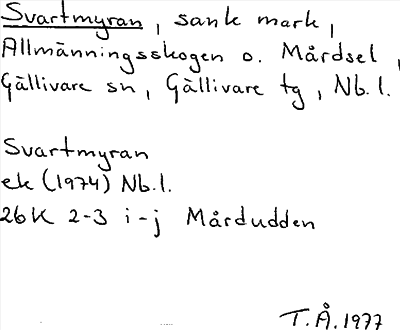 Svartmyran, sank mark,
Allmänningsskogen o. Mårdsel,
Gällivare sn, Gällivare tg, Nb.l.
Svartmyran
ek (1974) Nb.l.
26K 2-3 i-j Mårdudden
T.Å.1977